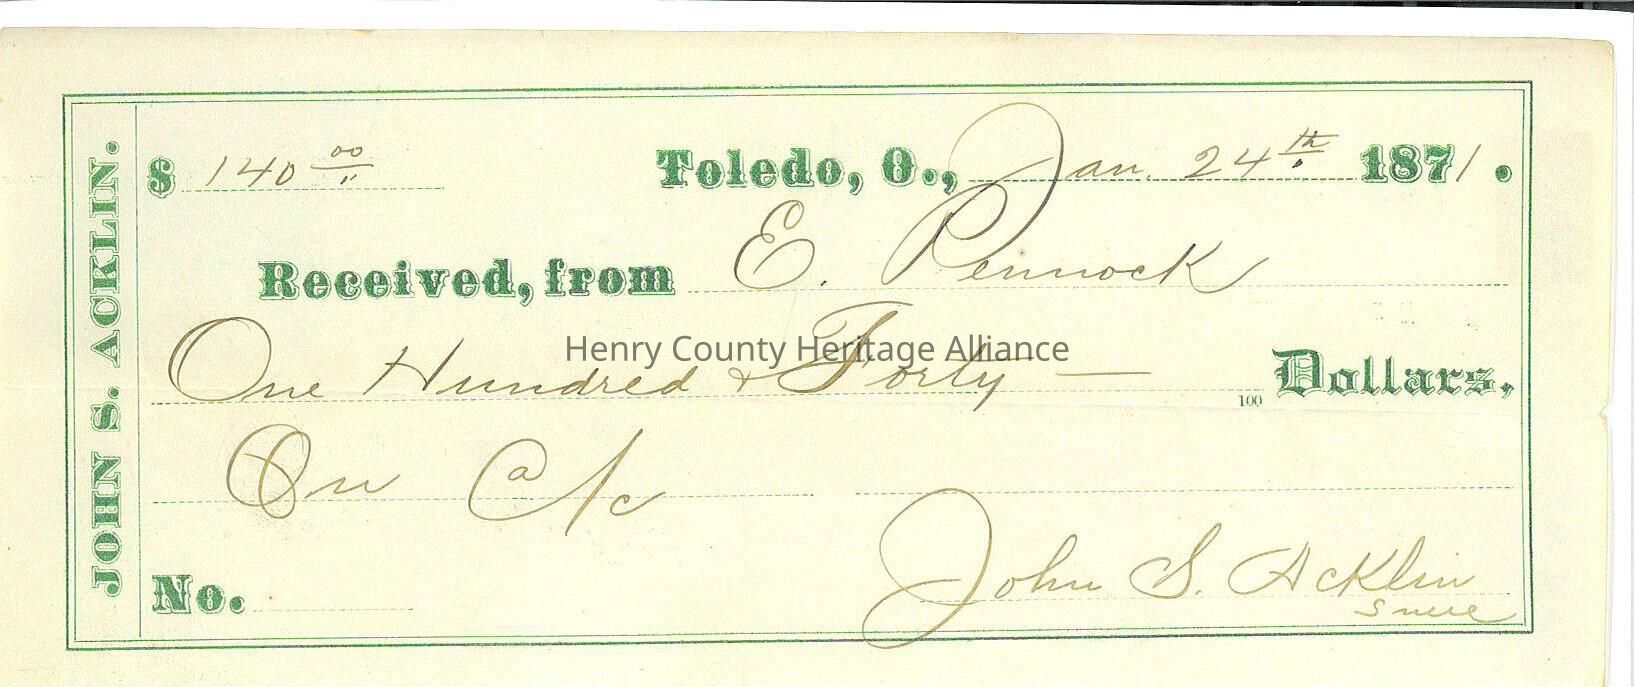 JOHN S. ACKLIN.
$ 140 00/" Toledo, O., Jan. 24th 1871.
Received, from E. Pennock
One Hundred & Forty — 100 Dollars,
On a/c
No. John S. Acklin
Henry County Heritage Alliance